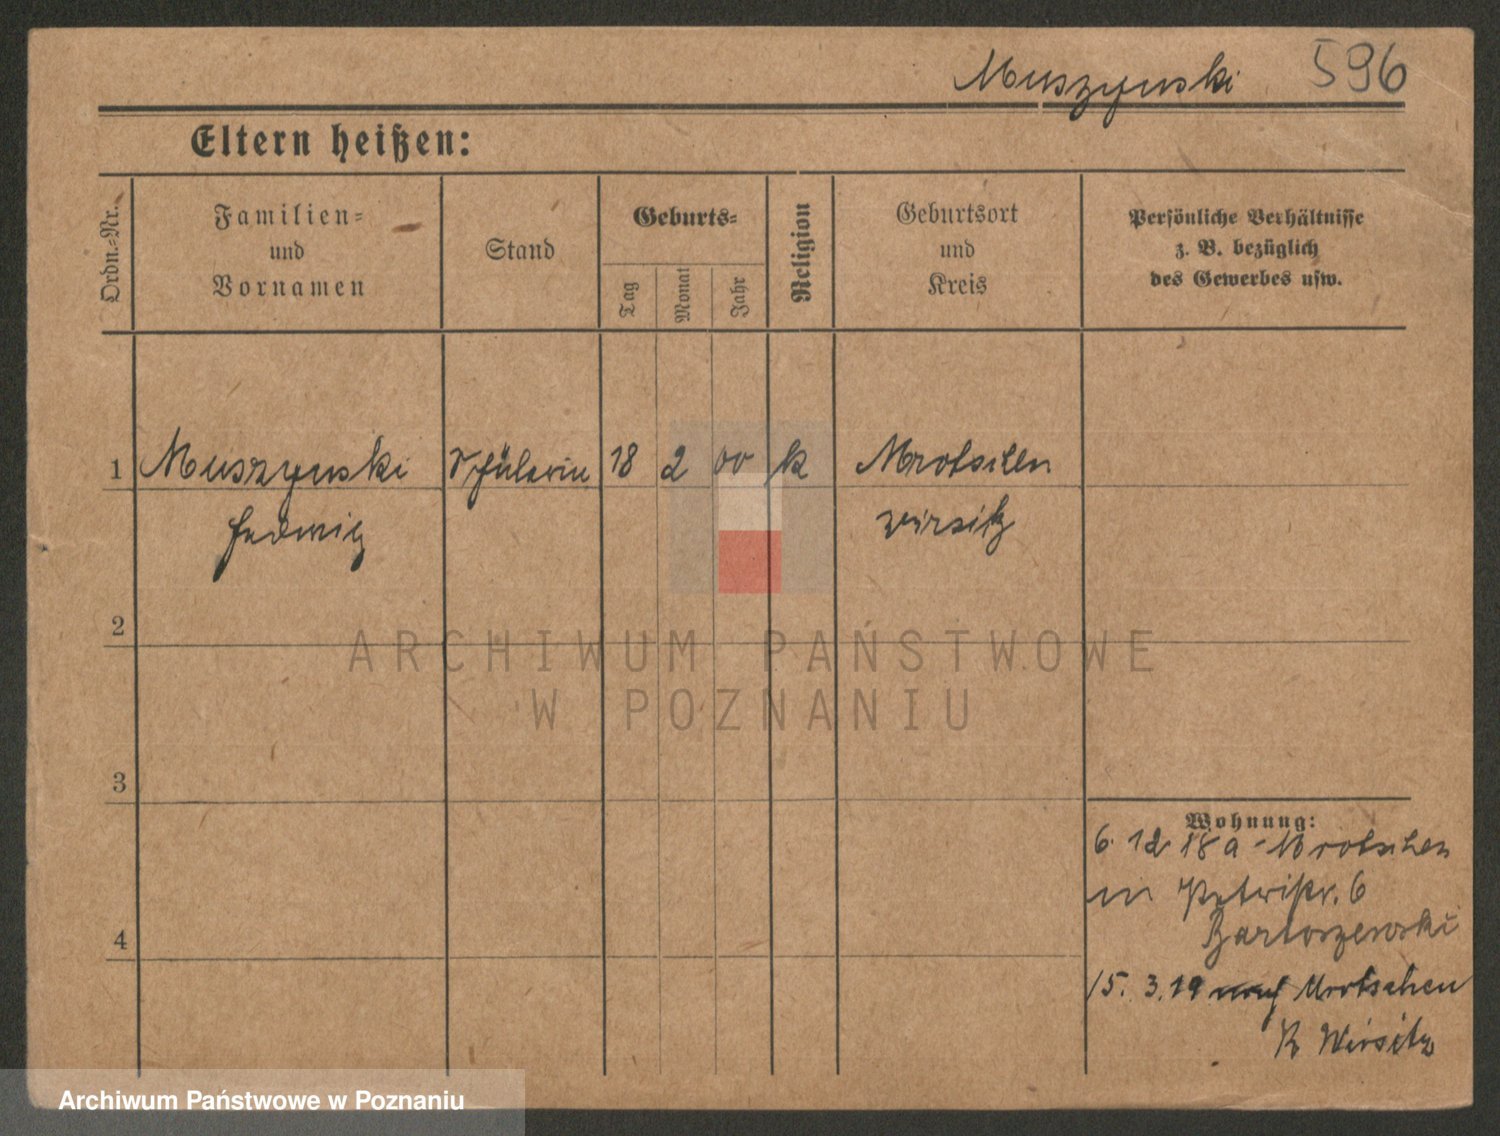 Muszynski 596
Eltern heißen:
Ordn.=Nr.
Familien=
und
Vornamen
Stand
Geburts=
Tag
Monat
Jahr
Religion
Geburtsort
und
Kreis
Persönliche Verhältnisse
z. B. bezüglich
des Gewerbes usw.
1 Muszynski Schülerin 18 2 00 k Mrotschen
Hedwig Wirsitz
2
3
4
Wohnung:
6. 12 18 a Mrotschen
in Petristr. 6
Bartoszewski
15. 3. 19 nach Mrotschen
K Wirsitz
ARCHIWUM PAŃSTWOWE
W POZNANIU
Archiwum Państwowe w Poznaniu